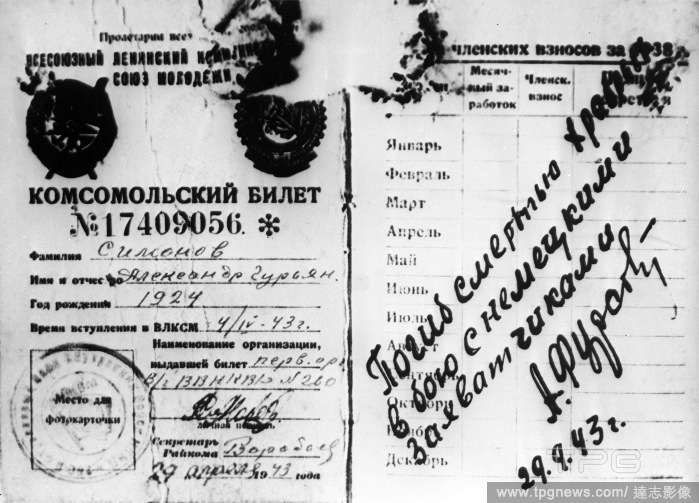 Пролетарии всех
ВСЕСОЮЗНЫЙ ЛЕНИНСКИЙ
СОЮЗ МОЛОДЕЖИ
КОМСОМОЛЬСКИЙ БИЛЕТ
№17409056. *
Фамилия Симонов
Имя и отчество Александр Гурьян.
Год рождения 1924
Время вступления в ВЛКСМ 4/IV-43г.
Наименование организации,
выдавшей билет перв. орг.
№ 260
Место для
фотокарточки
личная подпись
Секретарь
Райкома
29 апреля 1943 года
членских взносов за 1938
Месяч-
ный за-
работок
Членск.
взнос
Январь
Февраль
Март
Апрель
Май
Июнь
Июль
Август
Октябрь
Ноябрь
Декабрь
Погиб смертью храбрых
в бою с немецкими
захватчиками
А. Фурсов
29.9.43г.
TPG
www.tpgnews.com / 達志影像